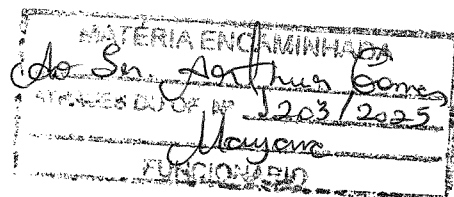 MATÉRIA ENCAMINHADA
Ao Sr. Arthur Gomes
ATRAVÉS DO OF. Nº 1203/2025
Mayara
FUNCIONÁRIO